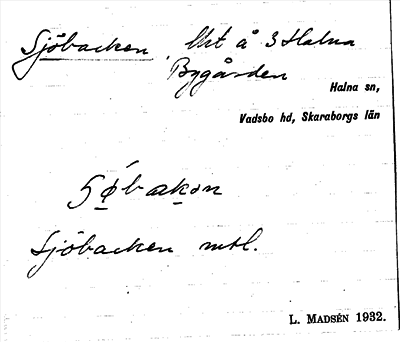 Sjöbacken, Uht å 3 Halna
Bygården
Halna sn,
Vadsbo hd, Skaraborgs län
Sjöbacken mtl.
L. MADSÉN 1932.